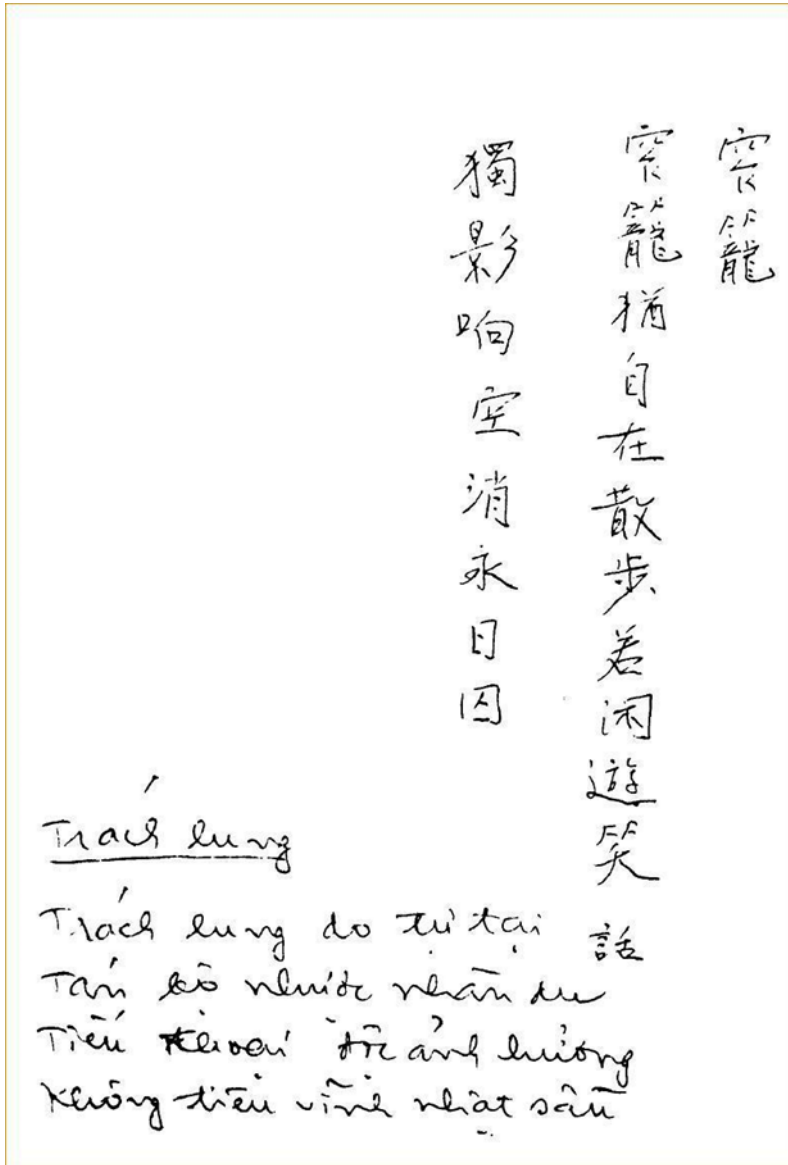 窄籠
窄籠猶自在散步若闲遊笑話
獨影响空消永日囚
Trách lung
Trách lung do tự tại
Tán bộ nhược nhàn du
Tiếu thoại độc ảnh hưởng
Không tiêu vĩnh nhật sầu